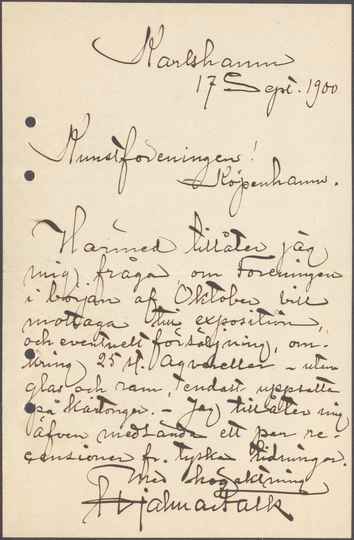 Karlshamn
17 Sept. 1900
Kunstforeningen!
Köpenhamn.
Härmed tillåter jag
mig fråga om Foreningen
i början af Oktober vill
mottaga till exposition,
och eventuelt försäljning, om-
kring 25 st. Aqvareller – utan
glas och ram, endast uppsatta
på Kartonger. – Jag tillåter mig
äfven medsända ett par re-
censioner fr. tyska tidningar.
Med högaktning
Hjalmar Falk